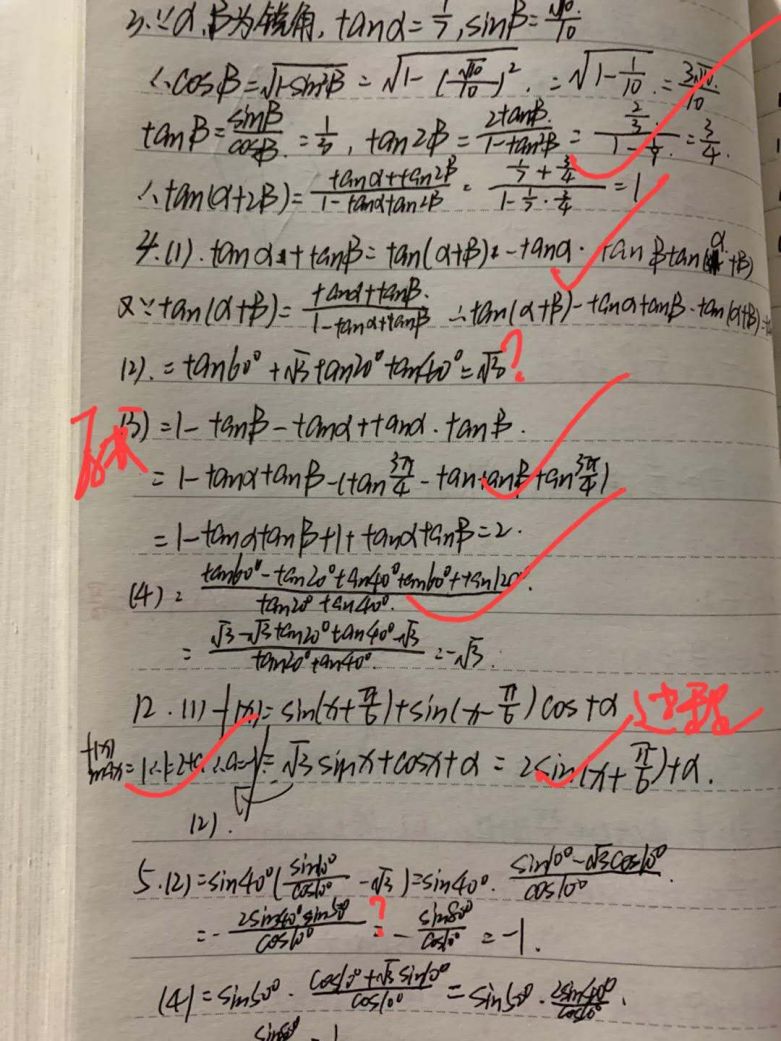 3.∵α,β为锐角, tanα=1/7, sinβ=√10/10
∴cosβ=√(1-sin²β)=√(1-(√10/10)²)=√(1-1/10)=3√10/10
tanβ=sinβ/cosβ=1/3, tan2β=2tanβ/(1-tan²β)=(2/3)/(1-1/9)=3/4.
∴tan(α+2β)=(tanα+tan2β)/(1-tanαtan2β)=(1/7+3/4)/(1-1/7·3/4)=1
4.(1).tanα+tanβ=tan(α+β)-tanα·tanβtan(α+β)
又∵tan(α+β)=(tanα+tanβ)/(1-tanαtanβ) ∴tan(α+β)-tanαtanβ·tan(α+β)=
(2).=tan60°+√3tan20°tan40°=√3?
(3)=1-tanβ-tanα+tanα·tanβ.
=1-tanαtanβ-(tan3π/4-tan·tanβtan3π/4)
=1-tanαtanβ+1+tanαtanβ=2.
(4)=(tan60°-tan20°tan40°tan60°+tan120°)/(tan20°tan40°)
=(√3-√3tan20°tan40°-√3)/(tan20°tan40°)=-√3.
12.(1)f(x)=sin(x+π/6)+sin(x-π/6)cos+α 过程
f(x)max=1∴1=2+a∴a=-1 =√3sinx+cosx+α=2sin(x+π/6)+α.
(2).
5.(2)=sin40°(sin10°/cos10°-√3)=sin40°·(sin10°-√3cos10°)/cos10°.
=-2sin40°sin50°/cos10° ?=-sin80°/cos10°=-1.
(4)=sin50°·(cos10°+√3sin10°)/cos10°=sin50°·2sin40°/cos10°.
sin80° =1